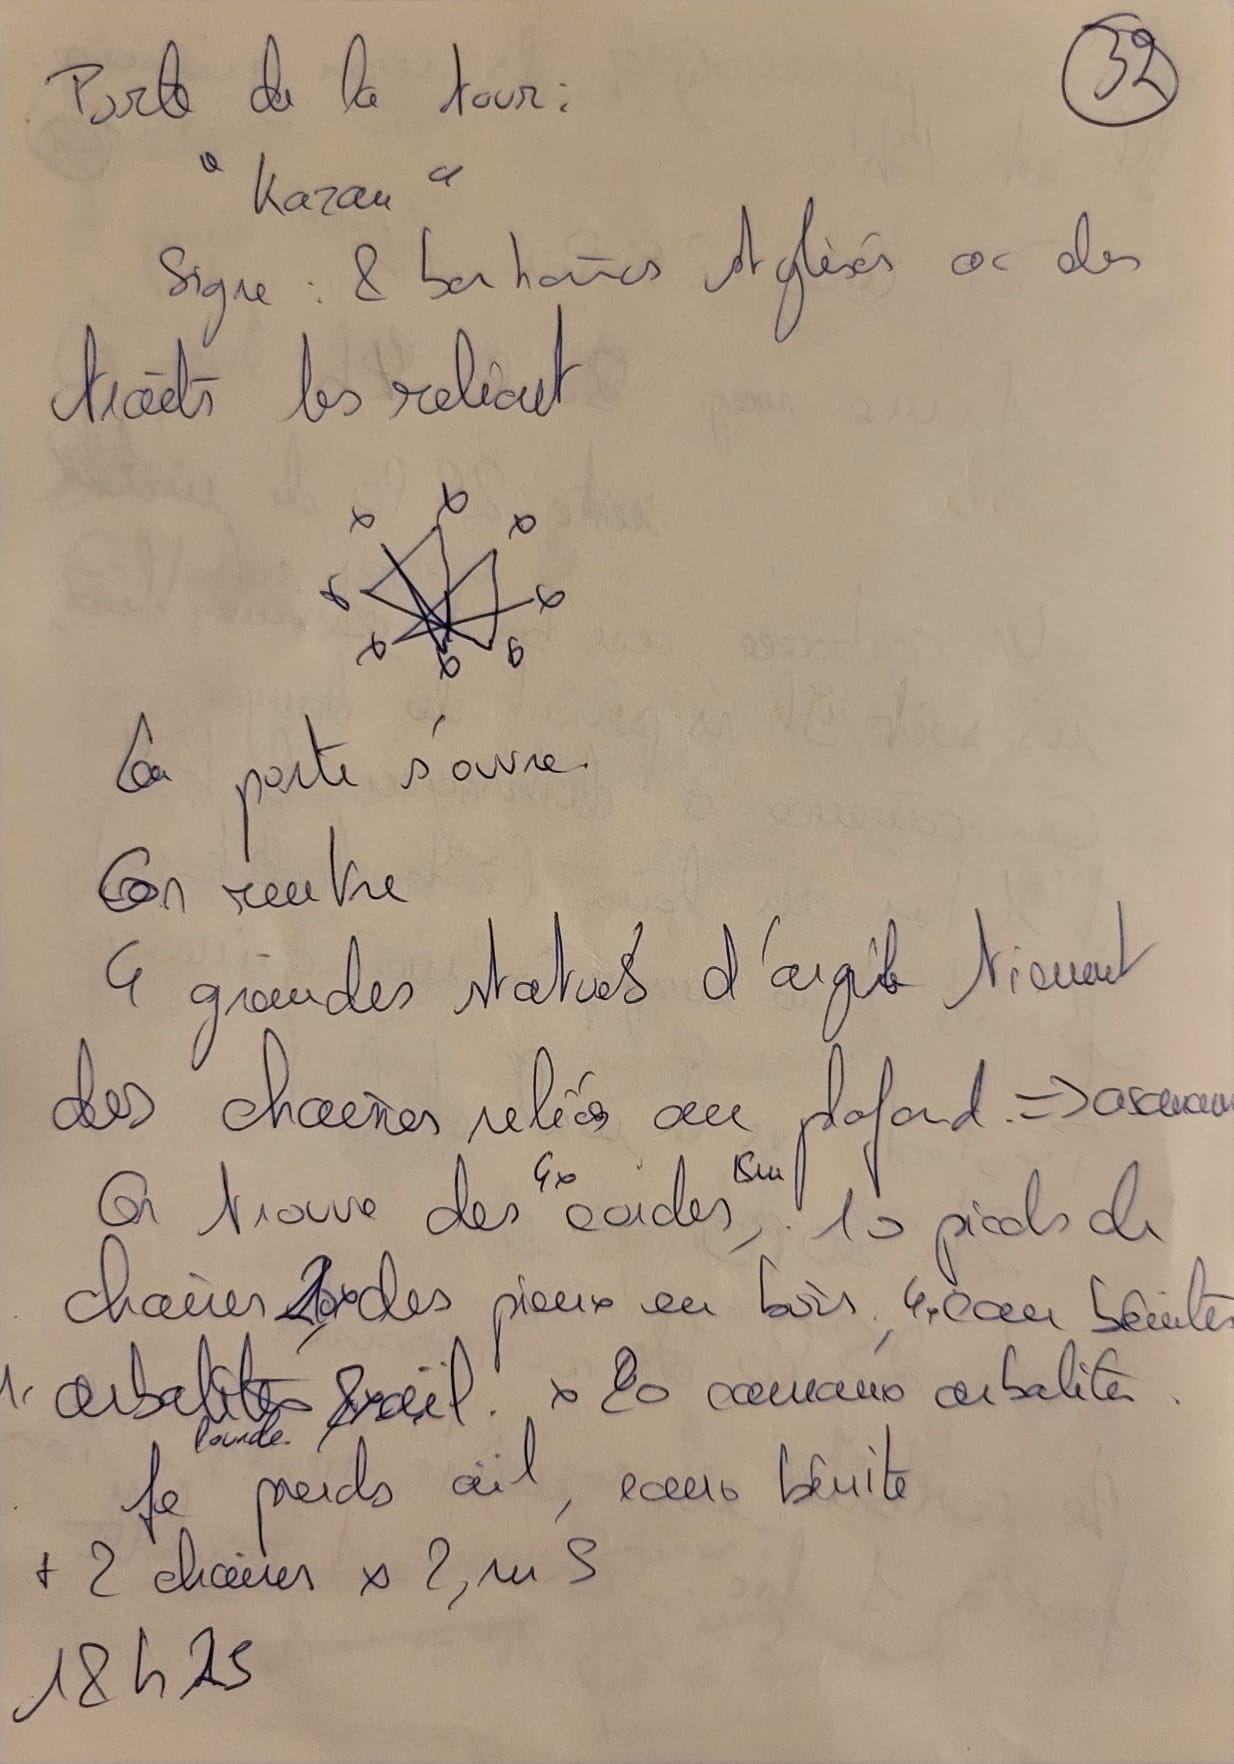 32
Porte de la tour :
"Kazan"
Signe : 8 bonhomes stylisés ac des
traits les reliant
La porte s'ouvre.
On rentre
4 grandes statues d'argile tiennent
des chaines reliés au plafond. => ascenseur
On trouve des 4x cordes 15m, 10 pieds de
chaines, des pieux en bois, 4x eau bénites
1x arbalète lourde, ail. x 20 carreaux arbalète.
Je prends ail, eau bénite
+ 2 chaines x 2,m 5
18h25